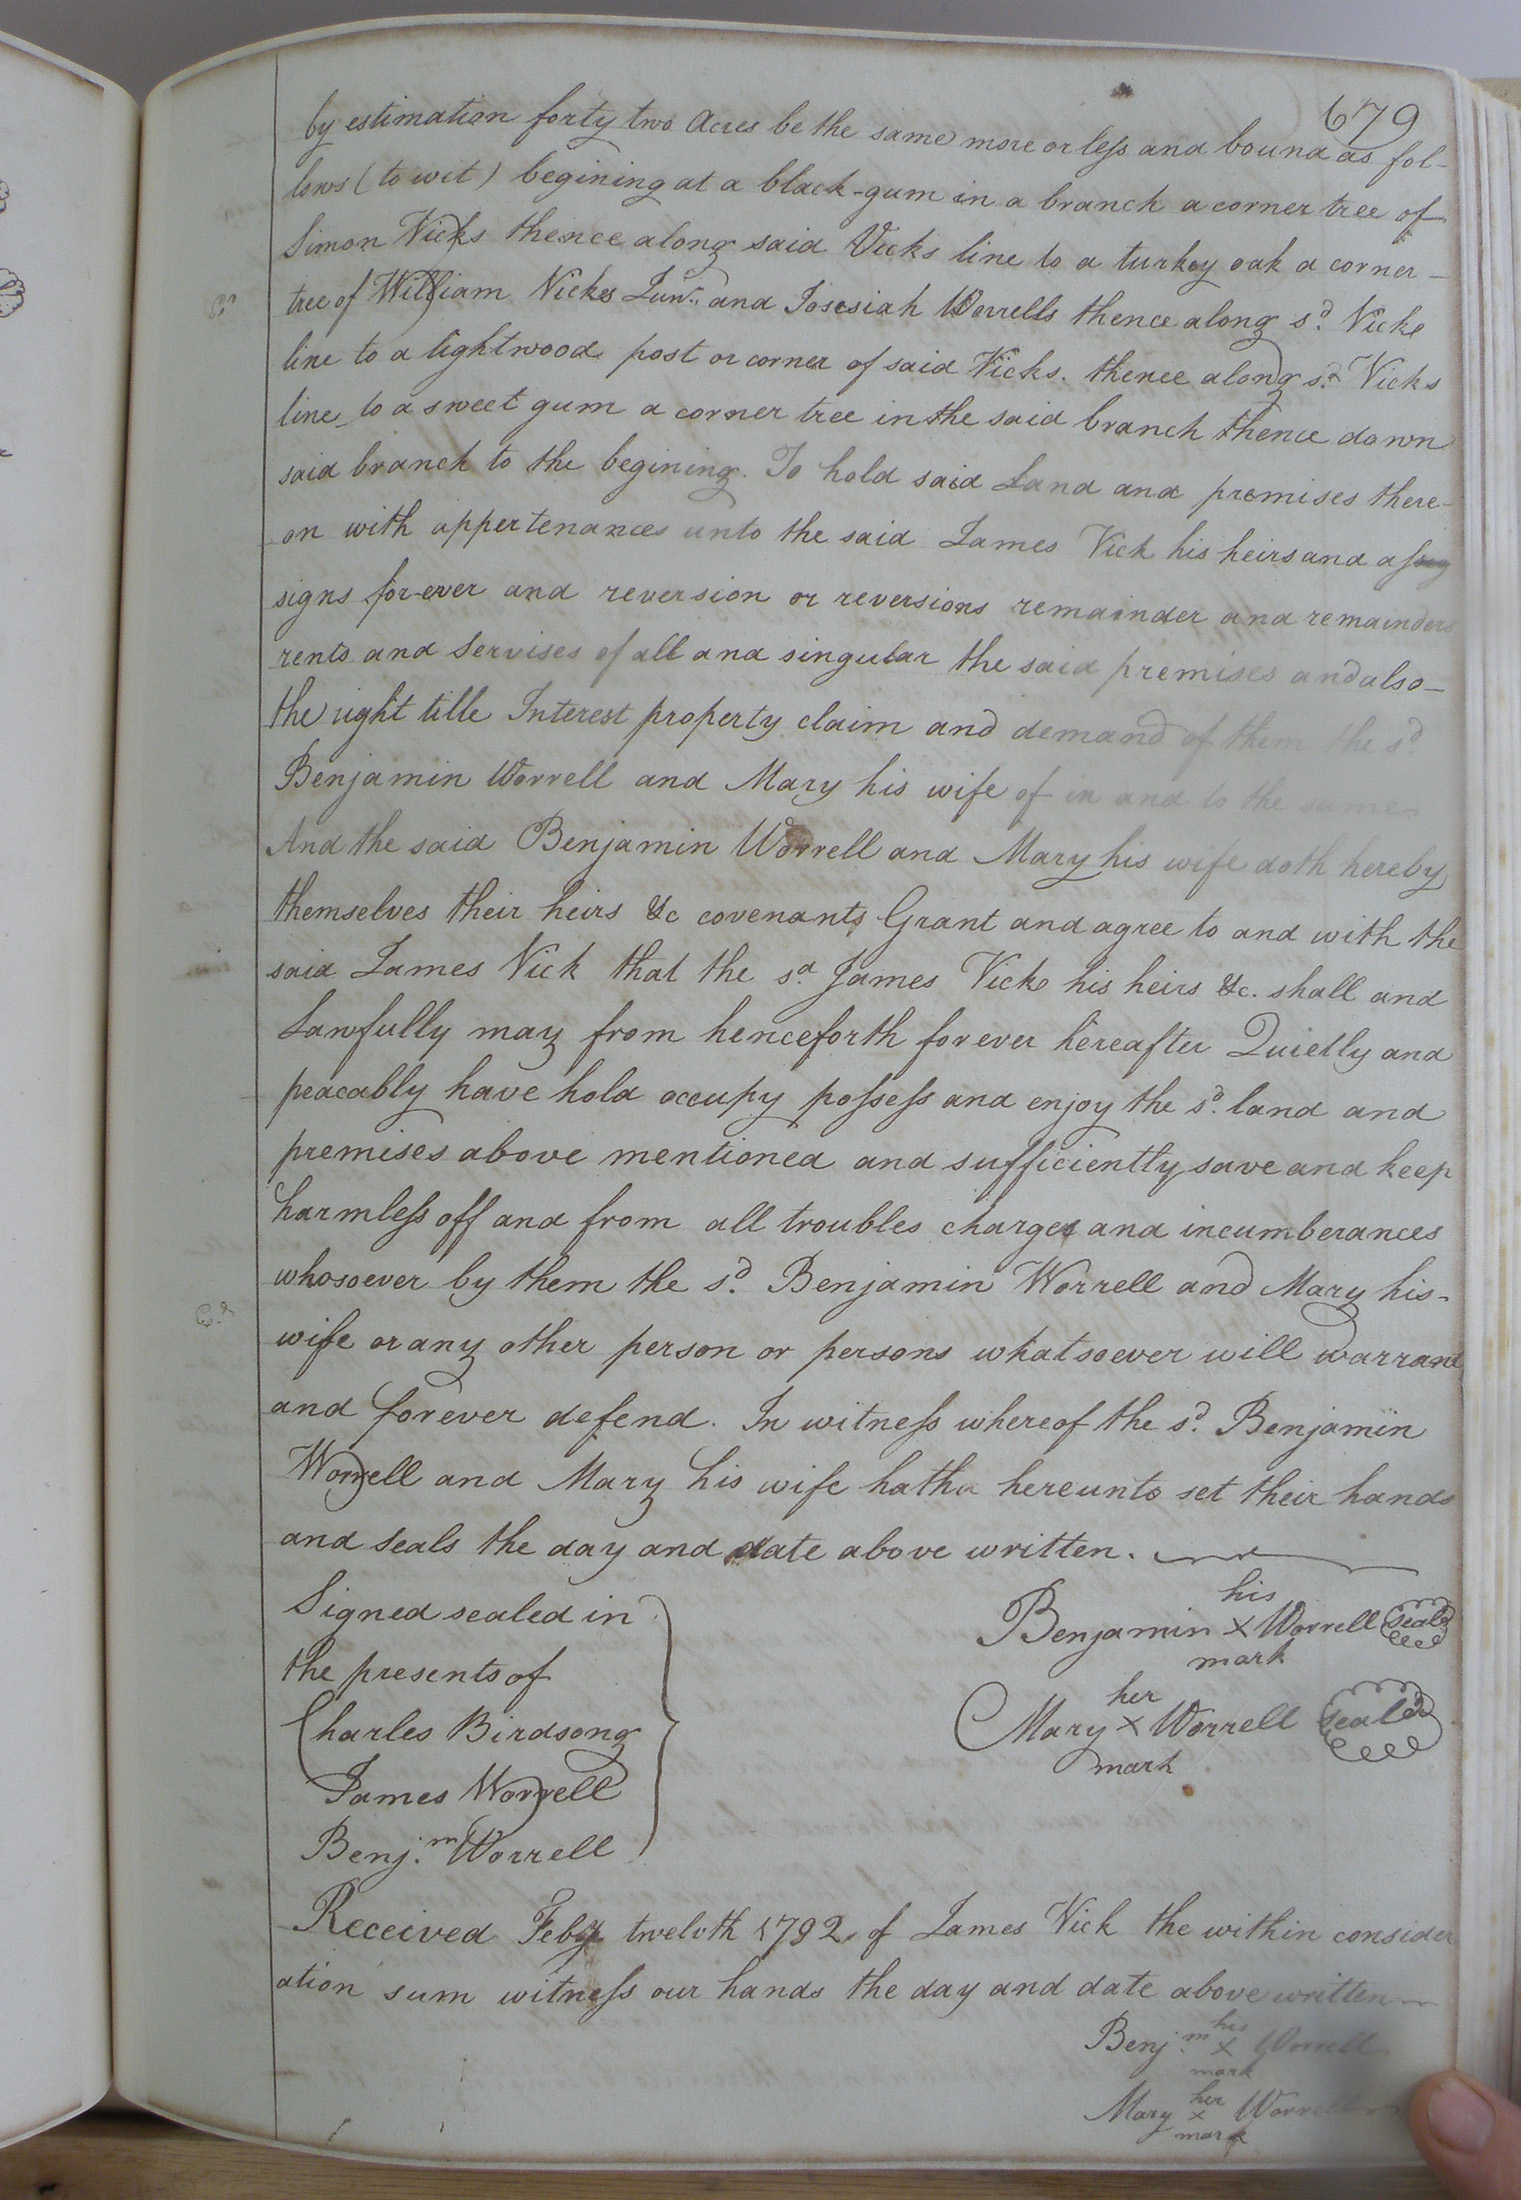 679
by estimation forty two Acres be the same more or less and bound as fol-
lows (to wit) begining at a black-gum in a branch a corner tree of
Simon Vicks thence along said Vicks line to a turkey oak a corner-
tree of William Vickes Junr. and Josesiah Worrells thence along sd. Vicks
line to a lightwood post or corner of said Vicks. thence along sd. Vicks
line to a sweet gum a corner tree in the said branch thence down
said branch to the begining. To hold said Land and premises there-
on with appertenances unto the said James Vick his heirs and as
signs for-ever and reversion or reversions remainder and remainders
rents and Servises of all and singular the said premises and also-
the right title Interest property claim and demand of them the sd.
Benjamin Worrell and Mary his wife of in and to the same
And the said Benjamin Worrell and Mary his wife doth hereby
themselves their heirs &c covenants Grant and agree to and with the
said James Vick that the sd. James Vick his heirs &c. shall and
Lawfully may from henceforth for ever hereafter Quietly and
peacably have hold occupy possess and enjoy the sd. land and
premises above mentioned and sufficiently save and keep
harmless off and from all troubles charges and incumberances
whosoever by them the sd. Benjamin Worrell and Mary his-
wife or any other person or persons whatsoever will warrant
and forever defend. In witness whereof the sd. Benjamin
Worrell and Mary his wife hatha hereunto set their hands
and seals the day and date above written.
Signed sealed in
the presents of
Charles Birdsong
James Worrell
Benj.m Worrell
his
Benjamin X Worrell seal
mark
her
Mary X Worrell seald
mark
Received Feby twelvth 1792 of James Vick the within consider
ation sum witness our hands the day and date above written
his
Benj.m X Worrell
mark
her
Mary X Worrell
mark